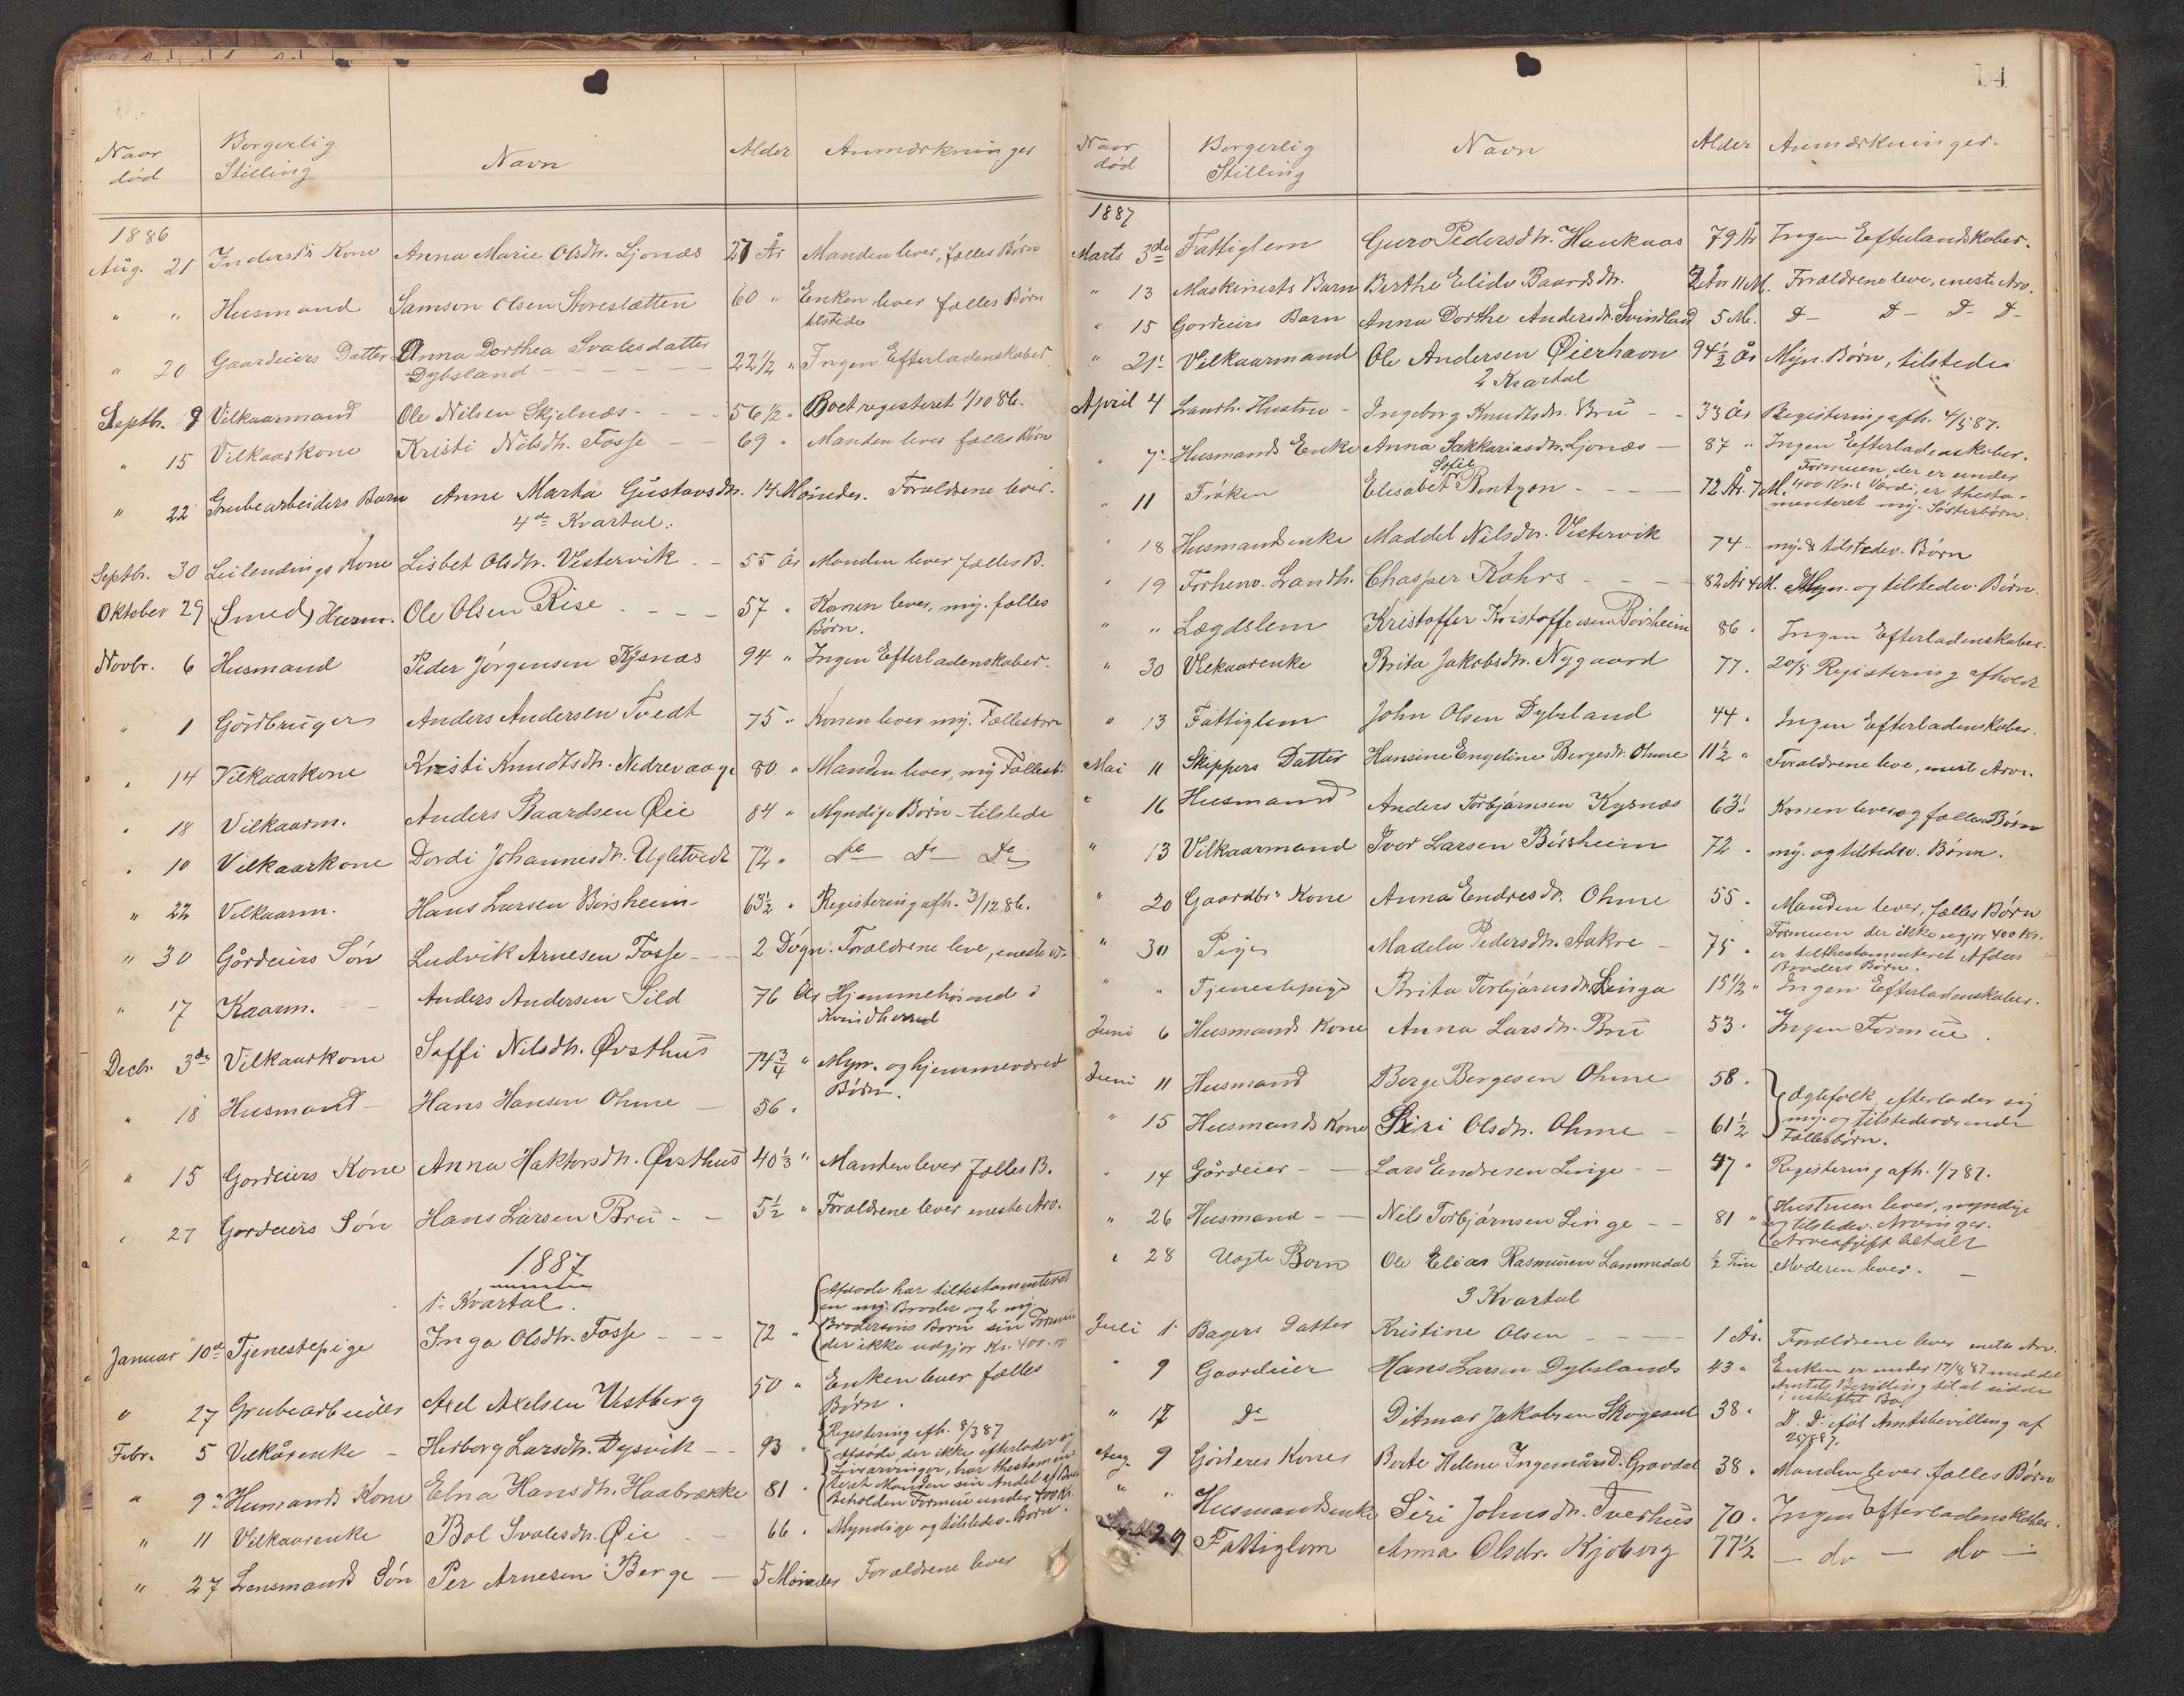 Naar død | Borgerlig Stilling | Navn | Alder | Anmærkninger
1886
Aug. 21 | Inderstes Kone | Anna Marie Olsdtr. Ljonæs | 27 År | Manden lever, fælles Børn
" " | Husmand | Samson Olsen Storesletten | 60 " | Enken lever fælles Børn
tilstede
" 20 | Gaardeiers Datter | Anna Dorthea Svalesdatter | 22 1/2 " | Ingen Efterladenskaber
Dybsland
Septbr. 9 | Vilkaarmand | Ole Nilsen Skjelnæs | 56 1/2 " | Boet registeret 1/10 86.
" 15 | Vilkaarkone | Kristi Nilsdtr. Fosse | 69 " | Manden lever fælles Børn
" 22 | Grubearbeiders Barn | Anne Marta Gustavsdtr. | 14 Måneder. | Forældrene lever.
4de Kvartal.
Septbr. 30 | Leilendings Kone | Lisbet Olsdtr. Vestervik | 55 år | Manden lever fælles B.
Oktober 29 | (Smed) Husm. | Ole Olsen Rise | 57 " | Konen lever, mÿ. fælles
Børn.
Novbr. 6 | Husmand | Peder Jørgensen Kysnæs | 94 " | Ingen Efterladenskaber.
" 1 | Gårdbruger | Anders Andersen Tvedt | 75 " | Konen lever mÿ. Fællesbørn
" 14 | Vilkaarkone | Kristi Knudtsdtr. Nedrevaage | 80 " | Manden lever, mÿ Fællesb
" 18 | Vilkaarm. | Anders Baardsen Øie | 84 " | Myndige Børn - tilstede
" 10 | Vilkaarkone | Dordi Johannesdtr. Ugletvedt | 72 " | do do do
" 22 | Vilkaarm. | Hans Larsen Børsheim | 63 1/2 " | Registering afh. 3/12 86.
" 30 | Gårdeiers Søn | Ludvik Arnesen Fosse | 2 Døgn. | Forældrene leve, eneste ar.
" 17 | Kaarm. | Anders Andersen Sild | 76 år | Hjemmehørende i
Kvindherred
Decbr. 3de | Vilkaarkone | Saffi Nilsdtr. Øvsthus | 74 3/4 " | Myn. og hjemmeværed
Børn.
" 18 | Husmand | Hans Hansen Ohme | 56 "
" 15 | Gordeiers Kone | Anna Haktorsdtr. Øvsthus | 40 1/3 " | Manden lever fælles B.
" 27 | Gordeiers Søn | Hans Larsen Bru | 5 1/2 " | Forældrene lever eneste Arv.
1887
1ste Kvartal.
Januar 10de | Tjenestepige | Inga Olsdtr. Fosse | 72 " | Afdøde har tiltestamenteret
en mÿ. Broder og 2 mÿ.
Brodersøns Børn sin Formue
der ikke udgjør Kr. 400.00
" 27 | Grubearbeider | Axel Axelsen Vestberg | 50 " | Enken lever fælles
Børn.
Febr. 5 | Vilkårenke | Herborg Larsdtr. Dysvik | 93 " | Registering afh. 8/3 87
" 9de | Husmands Kone | Elna Hansdtr. Haabrække | 81 " | Afdøde, der ikke efterlader sig
Livsarvinger, har thestamen
teret Manden sin Andel af Boet
Beholden Formue under 400 Kr.
" 11 | Vilkaarenke | Bol Svalesdtr. Øie | 66 " | Myndige og tilstedev. Børn.
" 27 | Lensmands Søn | Per Arnesen Berge | 5 Måneder | Forældrene lever
14
Naar død | Borgerlig Stilling | Navn | Alder | Anmærkninger.
1887
Marts 3de | Fattiglem | Guro Pedersdtr. Hauknas | 79 År | Ingen Efterladskaber.
" 13 | Maskinests Barn | Berthe Elide Baardsdtr. | 2 År 11 M. | Forældrene leve, eneste Arv.
" 15 | Gordeiers Barn | Anna Dorthe Andersdtr. Svindland | 5 M. | D- D- D- D-
" 21 | Vilkaarmand | Ole Andersen Øierhavn | 94 1/2 år | Myn. Børn, tilstede
2 Kvartal
April 4 | Landh. Hustru | Ingeborg Knudtsdtr. Bru | 33 år | Registering afh. 4/5 87.
" 7 | Husmands Enke | Anna Sakkariasdtr. Ljonæs | 87 " | Ingen Efterladenskaber.
" 11 | Frøken | Elisabet Sofie Bentzon | 72 År 7 M. | Formuen, der er under
400 Kr.s Værdi, er thesta-
menteret mÿ. Søsterbørn.
" 18 | Husmandsenke | Maddel Nilsdtr. Vestervik | 74 " | mÿ. & tilstedev. Børn
" 19 | Forhenv. Landh. | Chasper Rahrs | 82 År 4 M. | Myn. og tilstedev. Børn.
" " | Lægdslem | Kristoffer Kristoffersen Børsheim | 86 " | Ingen Efterladenskaber.
" 30 | Vilkaarenke | Brita Jakobsdtr. Nygaard | 77 " | 20/5 Registering afholdt
" 13 | Fattiglem | John Olsen Dybsland | 44 " | Ingen Efterladenskaber.
Mai 11 | Skippers Datter | Hansine Engeline Bergesdtr. Ohme | 11 1/2 " | Forældrene leve, enest Arv.
" 16 | Husmand | Anders Torbjørnsen Kysnæs | 63 " | Konen lever og fælles Børn
" 13 | Vilkaarmand | Ivor Larsen Børsheim | 72 " | mÿ. og tilstedev. Børn.
" 20 | Gaardbrs Kone | Anna Endresdtr. Ohme | 55 " | Manden lever, fælles Børn
" 30 | Pige | Madela Pedersdtr. Aakre | 75 " | Formuen der ikke ugjør 400 Kr.
er tilthestamenteret Afdøes
Broders Børn.
" " | Tjenestepige | Brita Torbjørnsdtr. Linga | 15 1/2 " | Ingen Efterladenskaber.
Juni 6 | Husmands Kone | Anna Larsdtr. Bru | 53 " | Ingen Formue.
Juni 11 | Husmand | Berge Bergesen Ohme | 58 " | Ægtefolk, efterlader sig
" 15 | Husmands Kone | Siri Olsdtr. Ohme | 61 1/2 | mÿ. og tilstedeværende
Fællesbørn.
" 14 | Gårdeier | Lars Endresen Linge | 37 " | Registering afh. 1/7 87.
" 26 | Husmand | Nils Torbjørnsen Linge | 81 " | Hustruen lever, myndige
og tilstedev. Arvinger.
Arveafgift betalt
" 28 | Uægte Barn | Ole Elias Rasmusen Lammedal | 1/2 Time | Moderen lever.
3 Kvartal
Juli 1 | Bagers Datter | Kristine Olsen | 1 År. | Forældrene lever eneste Arv.
" 9 | Gaardeier | Hans Larsen Dybslands | 43 " | Enken er under 17/8 87 meddel
Amtets Bevilling til at sidde
i uskiftet Bo
" 17 | Do | Ditmar Jakobsen Skogesal | 38 " | D. D. iføl Amtsbevilling af
Aug. 9 | Gårderes Kones | Berte Helene Ingemårsd. Gravdal | 38 " | Manden lever fælles Børn
" " | Husmandsenke | Siri Johnsdtr. Tverhus | 70 " | Ingen Efterladenskaber.
29 | Fattiglem | Anna Olsdr. Kjøberg | 77 1/2 | - do - do -